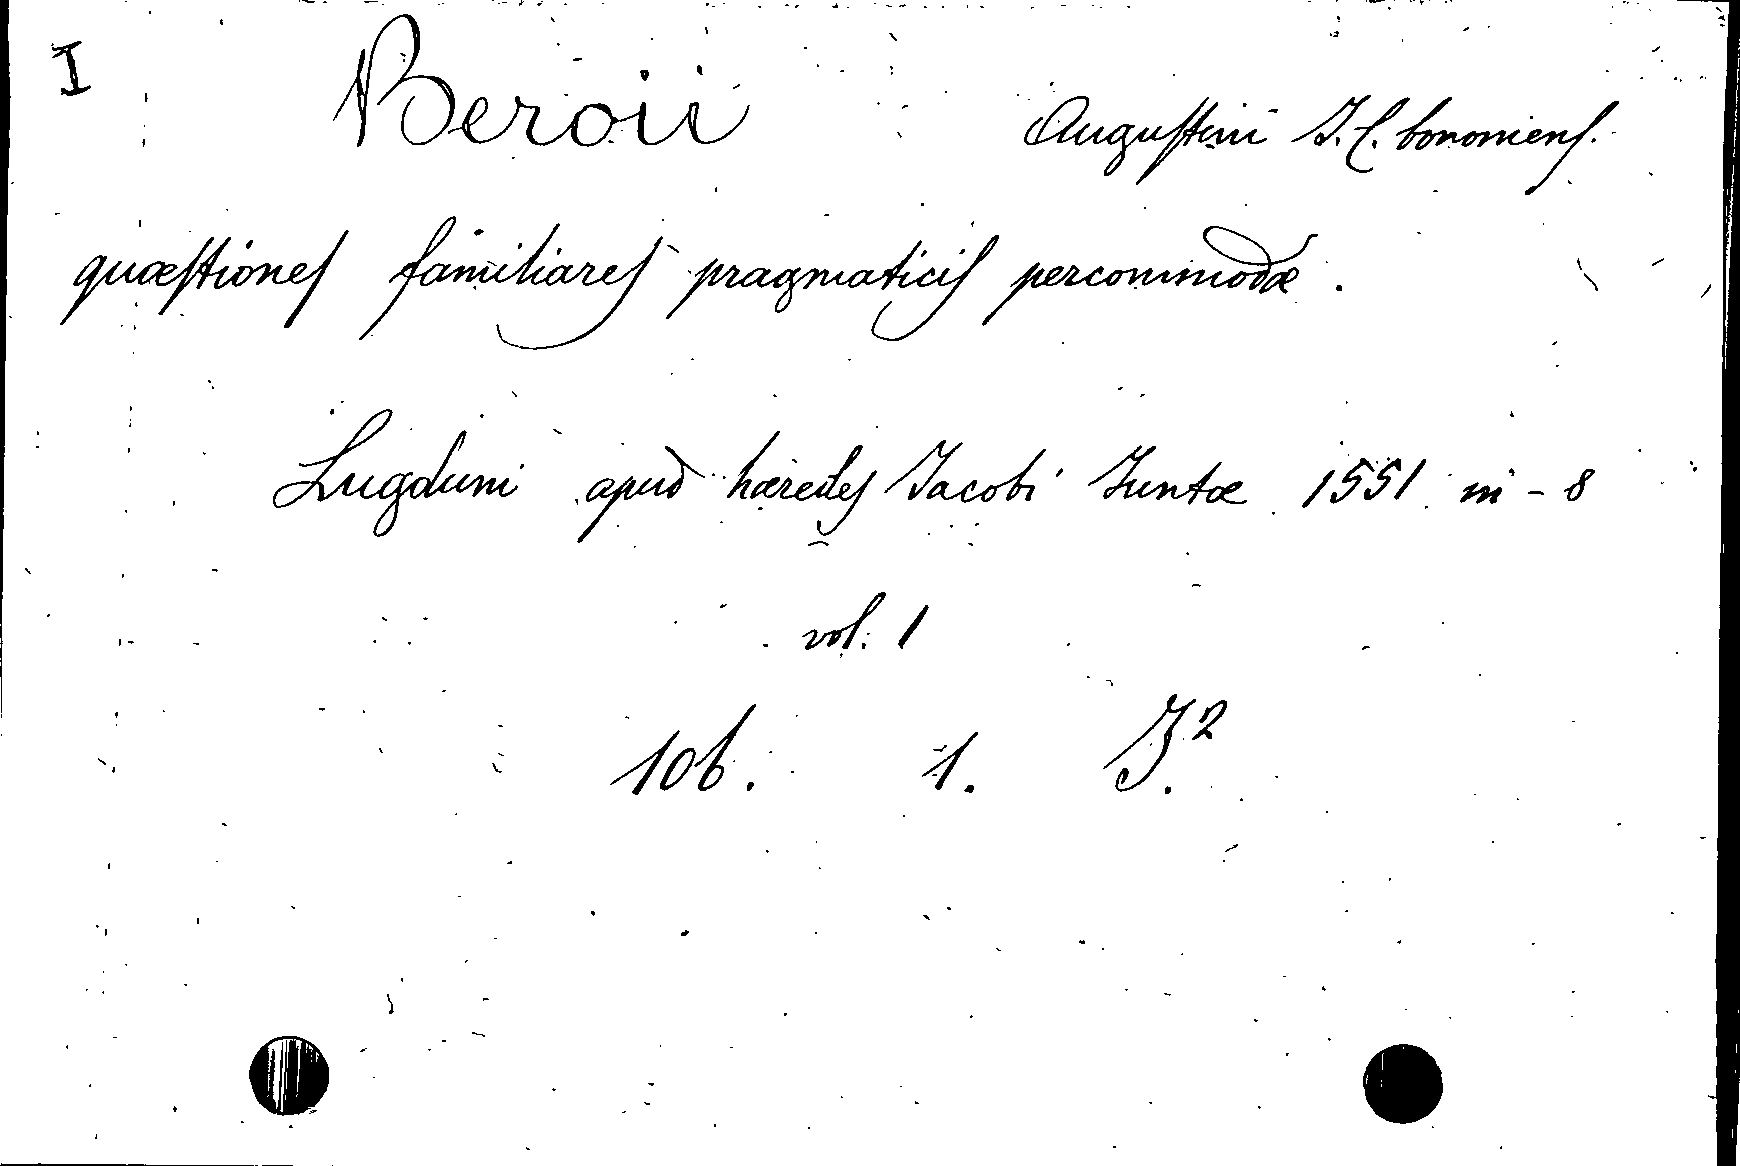 I
Beroii Augustini I. C. bononiens.
quæstiones familiares pragmaticis percommodæ.
Lugduni apud hæredes Jacobi Juntæ 1551 in-8
vol. 1
106. 1. I.²